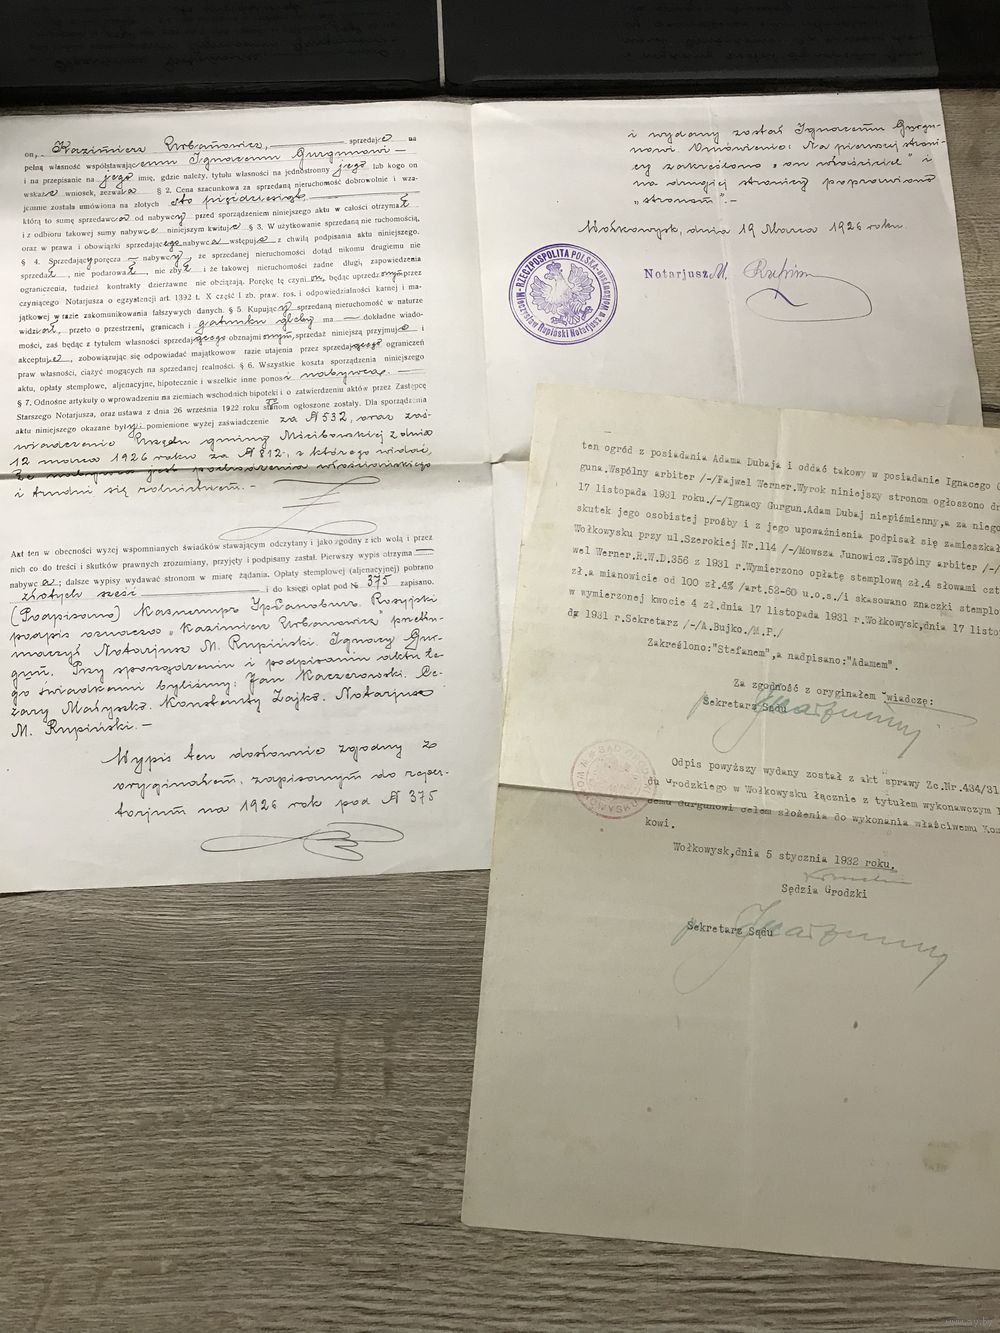 on, Kazimierz Urbanowicz, sprzedaje na
pełną własność współstawającemu Ignacemu Gurgunowi —
i na przepisanie na jego imię, gdzie należy, tytułu własności na jednostronny jego lub kogo on
wskaże wniosek, zezwala § 2. Cena szacunkowa za sprzedaną nieruchomość dobrowolnie i wza-
jemnie została umówiona na złotych sto pięćdziesiąt
którą to sumę sprzedawca od nabywcy przed sporządzeniem niniejszego aktu w całości otrzymał
i z odbioru takowej sumy nabywcę niniejszym kwituje § 3. W użytkowanie sprzedaną nieruchomość,
oraz w prawa i obowiązki sprzedającego nabywca wstępuje z chwilą podpisania aktu niniejszego.
§ 4. Sprzedający poręcza — nabywcy, że sprzedanej nieruchomości dotąd nikomu drugiemu nie
sprzedał, nie podarował, nie zbył i że takowej nieruchomości żadne długi, zapowiedzenia
ograniczenia, tudzież kontrakty dzierżawne nie obciążają. Porękę tę czyni on, będąc uprzedzonym przez
czyniącego Notarjusza o egzystencji art 1392 t. X część I zb. praw. ros. i odpowiedzialności karnej i ma-
jątkowej w razie zakomunikowania fałszywych danych. § 5. Kupujący sprzedaną nieruchomość w naturze
widział, przeto o przestrzeni, granicach i gatunku gleby ma — dokładne wiado-
mości, zaś będąc z tytułem własności sprzedającego obznajmionym, sprzedaż niniejszą przyjmuje i
akceptuje, zobowiązując się odpowiadać majątkowo w razie utajenia przez sprzedającego ograniczeń
praw własności, ciążyć mogących na sprzedanej realności. § 6. Wszystkie koszta sporządzenia niniejszego
aktu, opłaty stemplowe, aljenacyjne, hipoteczne i wszelkie inne ponosi nabywca. —
§ 7. Odnośne artykuły o wprowadzeniu na ziemiach wschodnich hipoteki i o zatwierdzeniu aktów przez Zastępcę
Starszego Notarjusza, oraz ustawa z dnia 26 września 1922 roku stronom ogłoszone zostały. Dla sporządzenia
aktu niniejszego okazane były: pomienione wyżej zaświadczenie za № 532, oraz zaś-
wiadczenie Urzędu gminy Mściborskiej z dnia
12 marca 1926 roku za № 812, z którego widać,
że nabywca jest pochodzenia włościańskiego
i trudni się rolnictwem. —
Akt ten w obecności wyżej wspomnianych świadków stawającym odczytany i jako zgodny z ich wolą i przez
nich co do treści i skutków prawnych zrozumiany, przyjęty i podpisany został. Pierwszy wypis otrzyma —
nabywca; dalsze wypisy wydawać stronom w miarę żądania. Opłaty stemplowej (aljenacyjnej) pobrano
złotych sześć i do księgi opłat pod № 375 zapisano.
(Podpisano) Казимиръ Урбановичъ. Rosyjski
podpis oznacza "Kazimierz Urbanowicz" przetłu-
maczył Notarjusz M. Rupiński. Ignacy Gur-
gun. Przy sporządzeniu i podpisaniu aktu te-
go świadkami byliśmy: Jan Kaczerowski. Ce-
zary Małyszko. Konstanty Zajko. Notarjusz
M. Rupiński. —
Wypis ten dosłownie zgodny z
oryginałem, zapisanym do reper-
torjum na 1926 rok pod № 375
i wydany został Ignacemu Gurgu-
nowi. Omówiono: Na pierwszej stroni-
cy zakreślono "on właściciel" i
na drugiej stronicy poprawiono
"stronom". —
Wołkowysk, dnia 19 Marca 1926 roku.
RZECZPOSPOLITA POLSKA
Mieczysław Rupiński Notarjusz w Wołkowysku
Notarjusz M. Rupiński
ten ogród z posiadania Adama Dubaja i oddać takowy w posiadanie Ignacego G
guna.Wspólny arbiter /-/Fajwel Werner.Wyrok niniejszy stronom ogłoszono dn
17 listopada 1931 roku./-/Ignacy Gurgun.Adam Dubaj niepiśmienny,a za niego
skutek jego osobistej prośby i z jego upoważnienia podpisał się zamieszkał
Wołkowysku przy ul.Szerokiej Nr.114 /-/Mowsza Junowicz.Wspólny arbiter /-/
wel Werner.R.W.D.356 z 1931 r.Wymierzono opłatę stemplową zł.4 słowami czt
zł.a mianowicie od 100 zł.4% /art.52-60 u.o.s./i skasowano znaczki stemplo
w wymierzonej kwocie 4 zł.dnia 17 listopada 1931 r.Wołkowysk,dnia 17 listo
da 1931 r.Sekretarz /-/A.Bujko./M.P./
Zakreślono:"Stefanem",a nadpisano:"Adamem".
Za zgodność z oryginałem świadczę:
Sekretarz Sądu
Odpis powyższy wydany został z akt sprawy Zc.Nr.434/31
du Grodzkiego w Wołkowysku łącznie z tytułem wykonawczym I
cemu Gurgunowi celem złożenia do wykonania właściwemu Kom
kowi.
Wołkowysk,dnia 5 stycznia 1932 roku.
Sędzia Grodzki
Sekretarz Sądu
www.ay.by